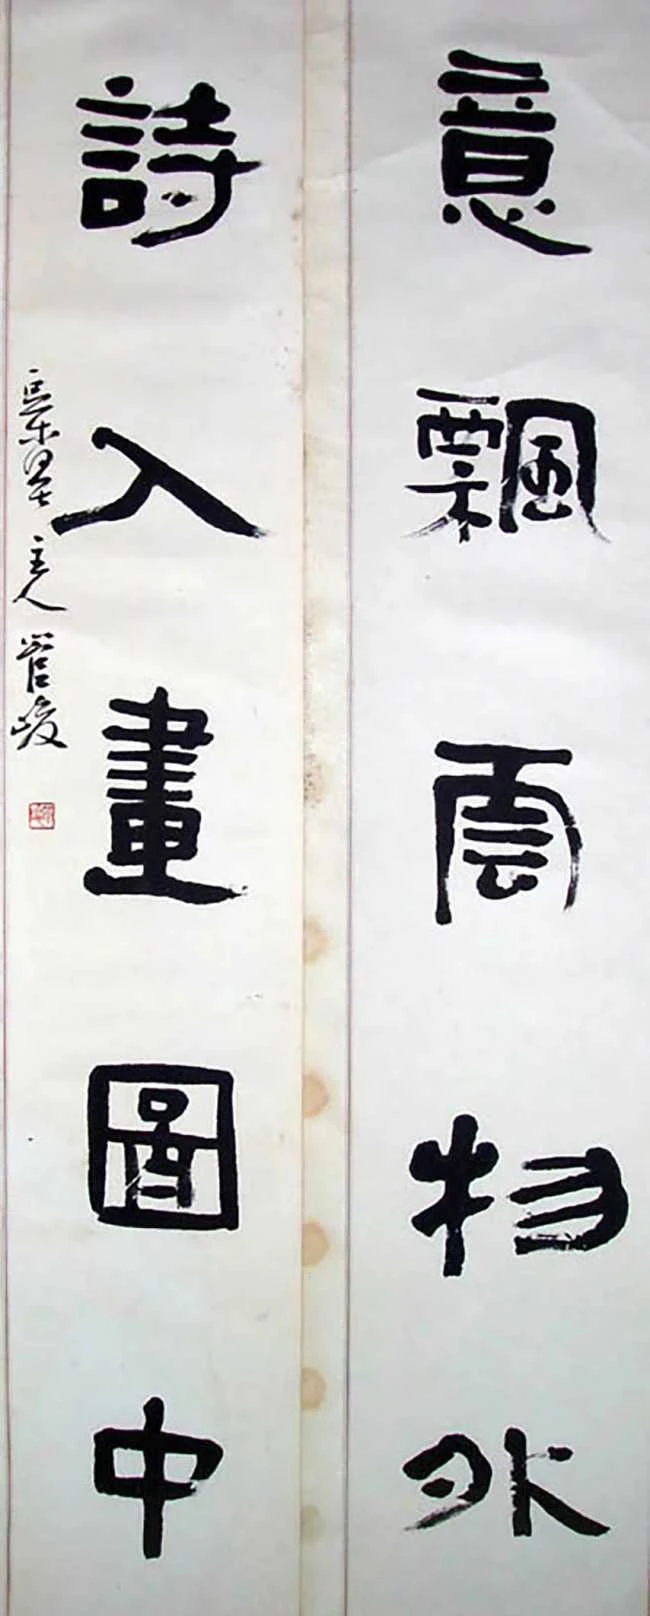 意飄雲物外
詩入畫圖中
主人管峻